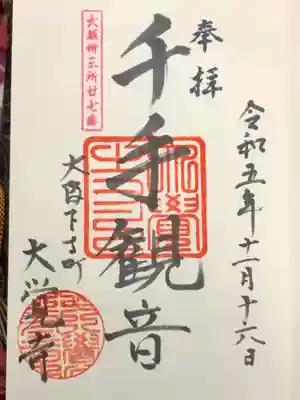 奉拝
令和五年十一月十六日
大阪卅三所廿七番
千手観音
大阪下寺町
大覚寺